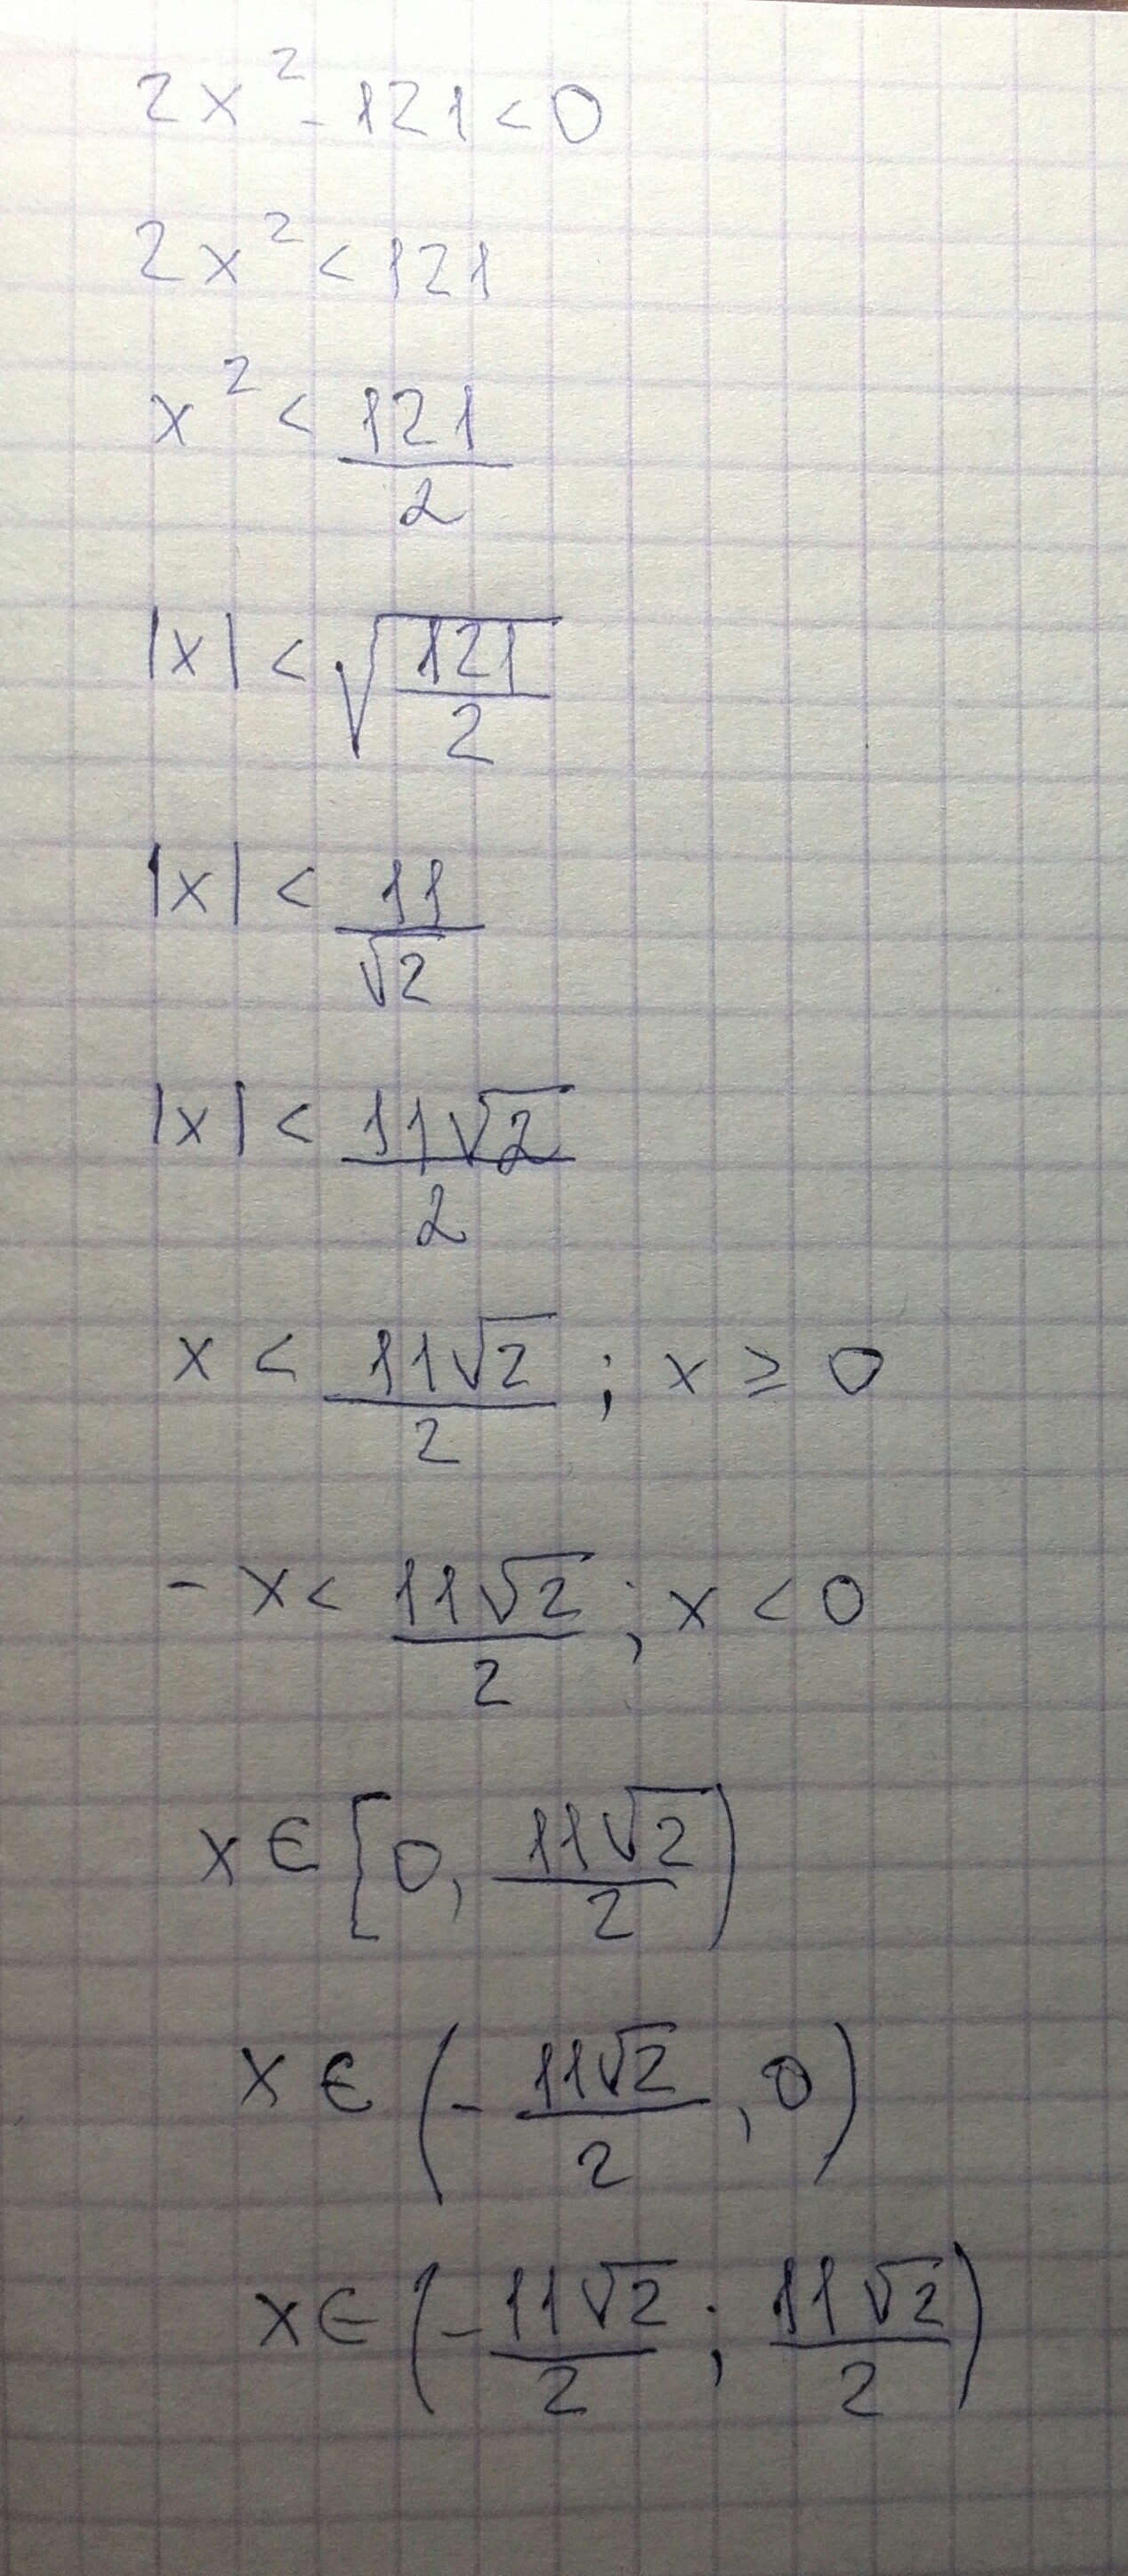 2x² - 121 < 0
2x² < 121
x² < 121/2
|x| < √(121/2)
|x| < 11/√2
|x| < 11√2/2
x < 11√2/2 ; x ≥ 0
-x < 11√2/2 ; x < 0
x ∈ [0, 11√2/2)
x ∈ (-11√2/2, 0)
x ∈ (-11√2/2 ; 11√2/2)